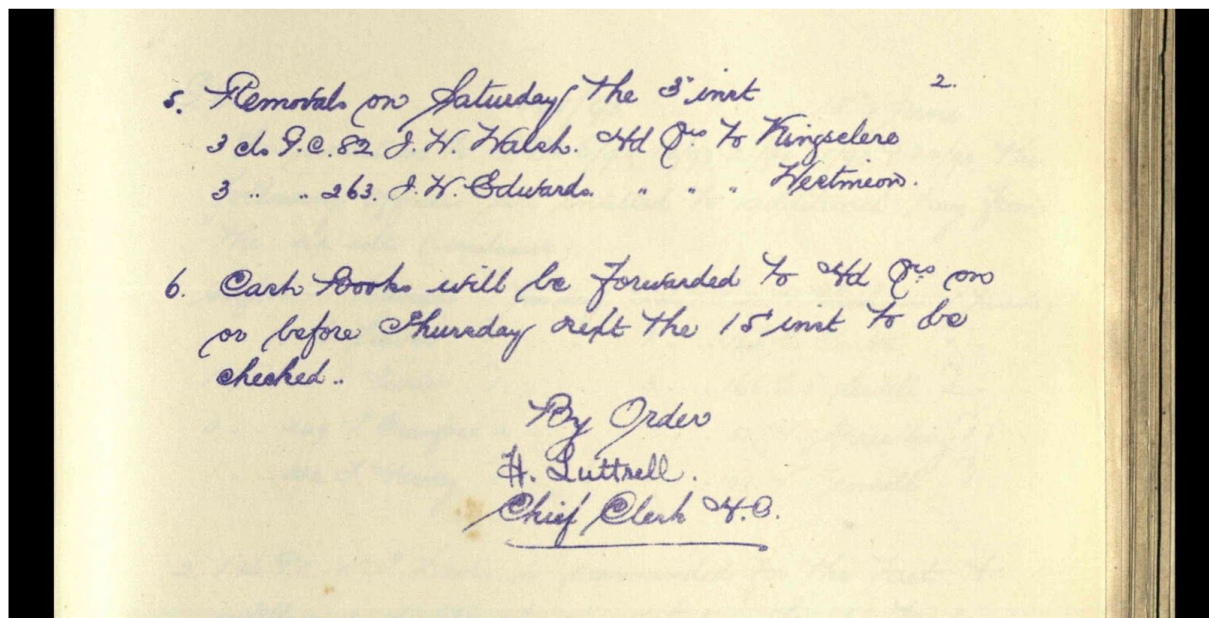 2.
5. Removals on Saturday the 3rd inst
3 cls P.C. 82 J. W. Walsh. Hd Qrs to Kingsclere
3 " " 263. J. W. Edwards. " " " Westmeon.
6. Cash Books will be forwarded to Hd Qrs on
or before Thursday next the 15th inst to be
checked..
By Order
H. Luttrell.
Chief Clerk H.C.